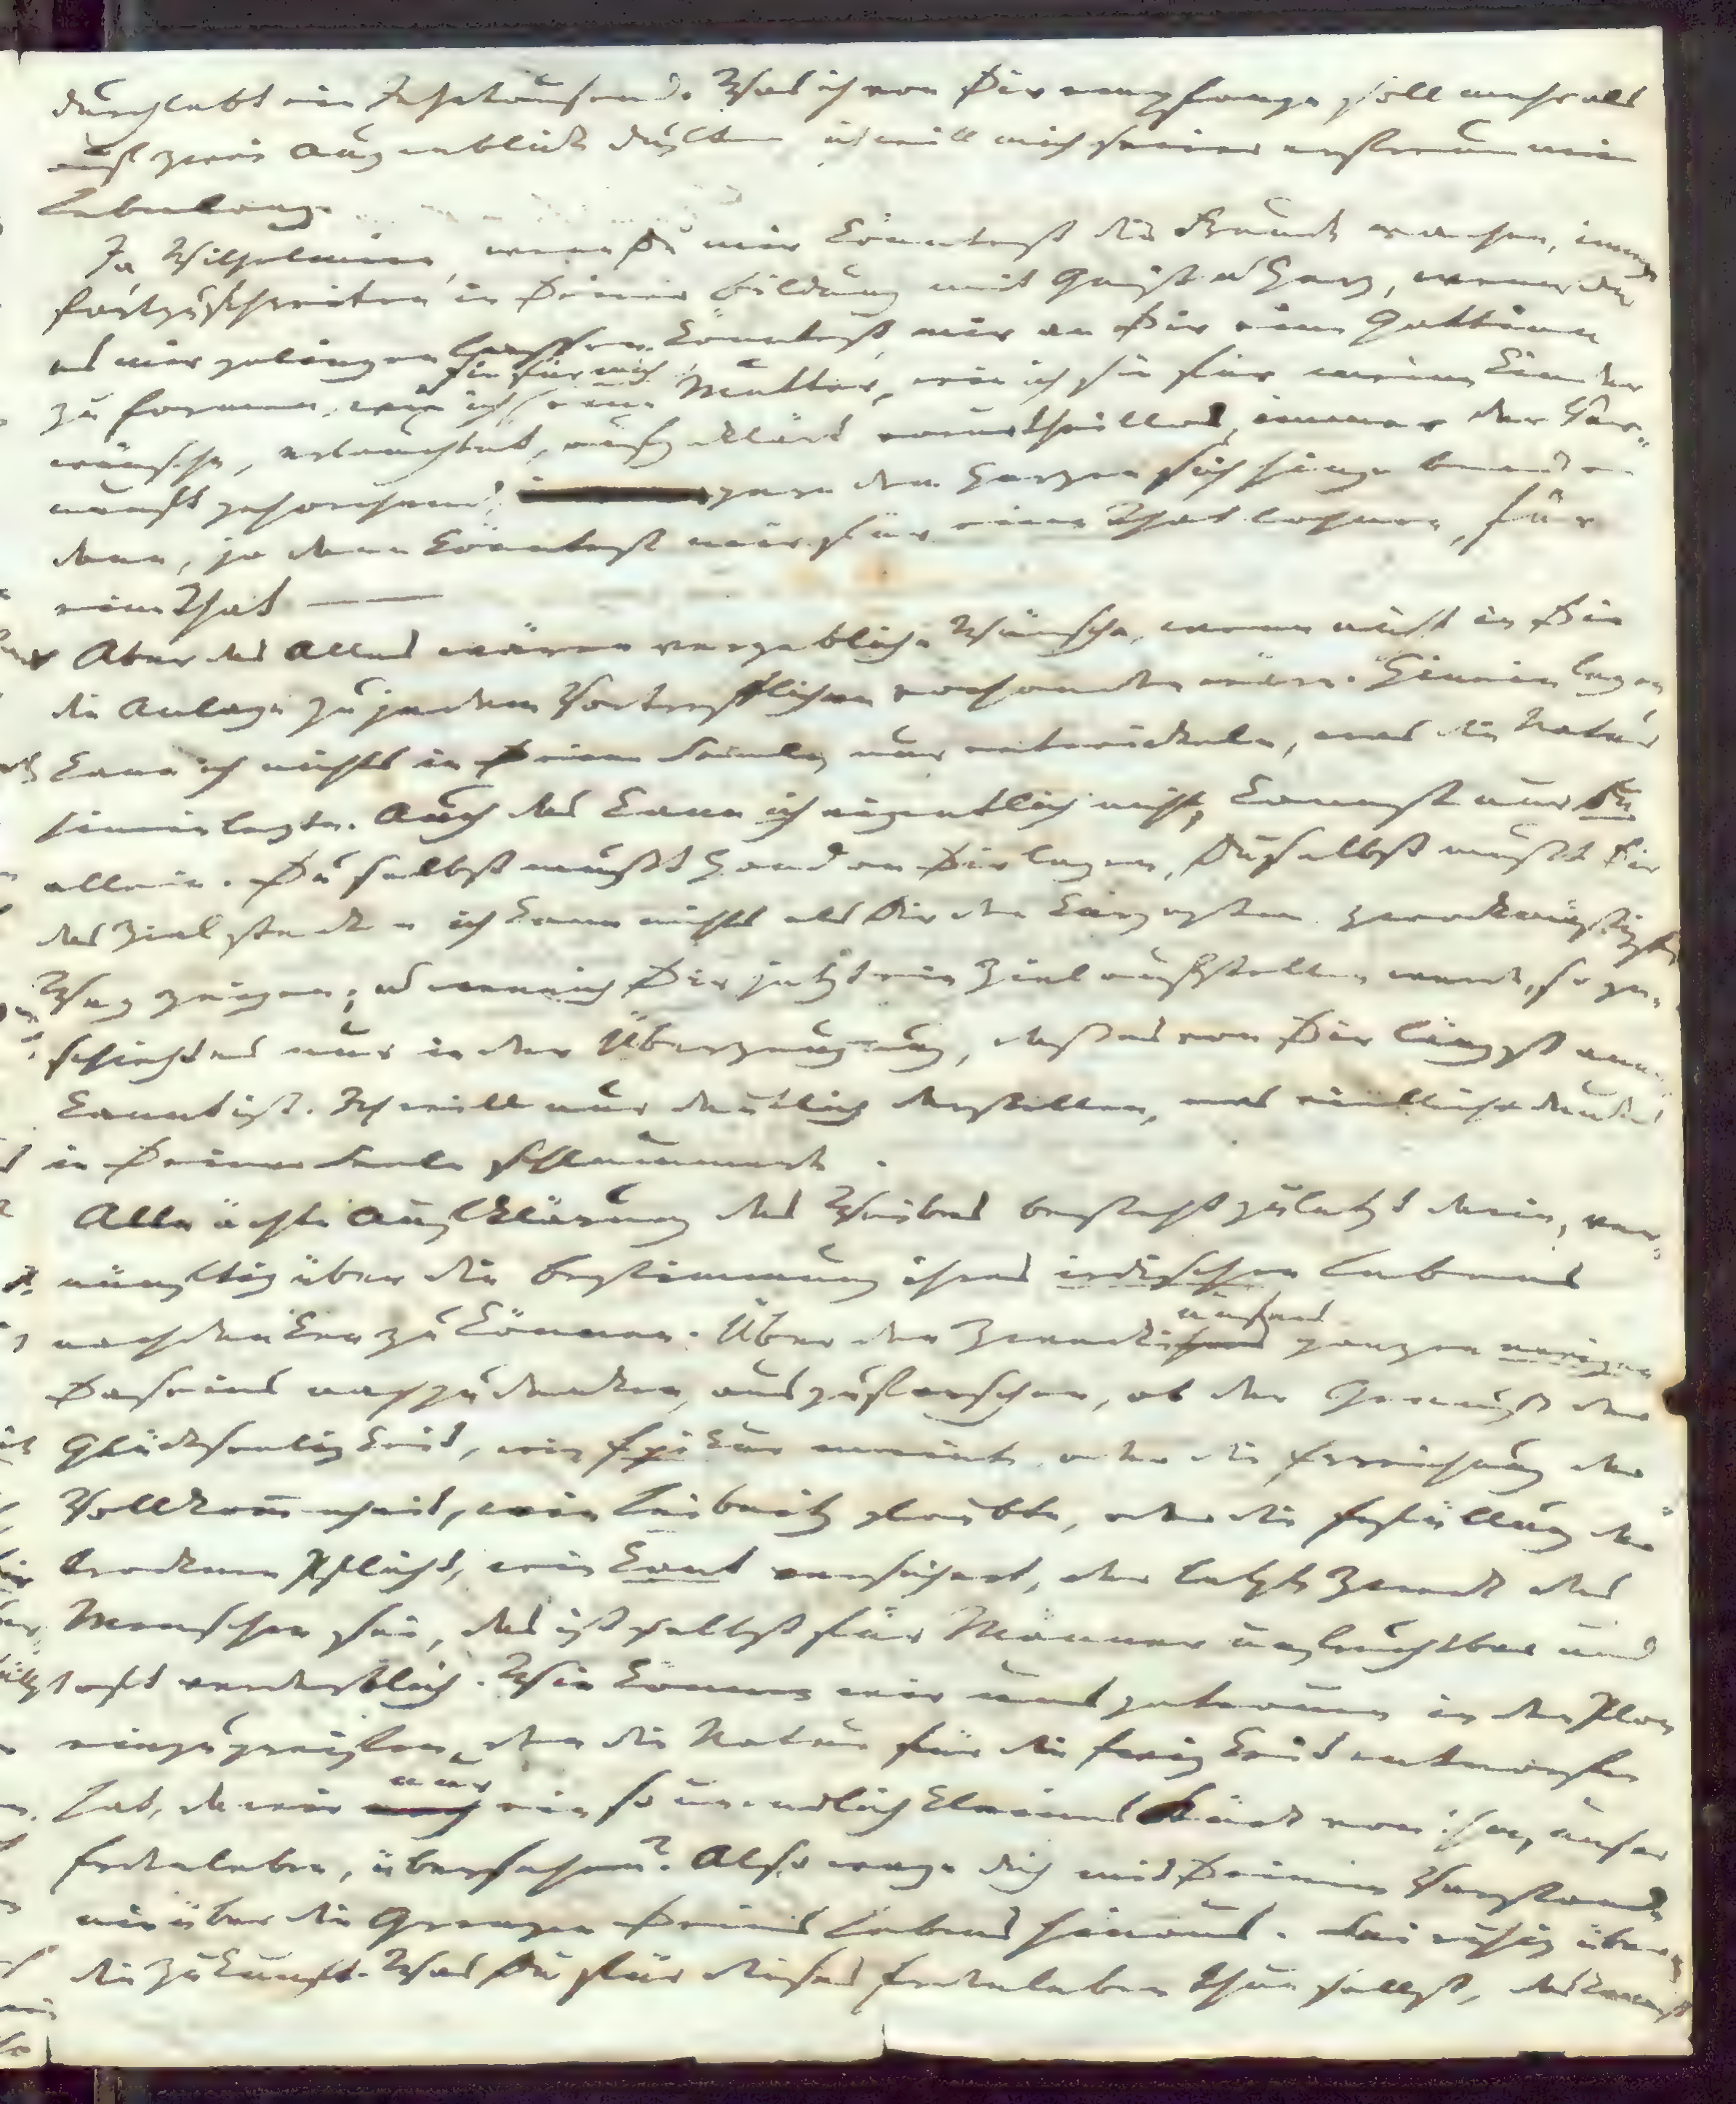 durchlebt ein Jahrtausend. Was ich von Dir empfange soll mehr als
auf zwei Augenblick dulten ich will mich seiner erfreun mein
Lebenlang.
Ja Wilhelmine, wenn Du mir könntest die Freude machen, immer
fortzuschreiten in Deiner Bildung mit Geist u Herz, wenn Du
es mir gelingen lassen könntest, mir an Dir eine Gattinn
zu formen, wie ich sie für mich, eine Mutter, wie ich sie für meine Kinder
wünsche, erleuchtet, aufgeklärt, vorurtheillos, immer der Ver-
nunft gehorchend, gern dem Herzen sich hingebend —
dann, ja dann könntest mir für eine That lohnen, für
eine That —
Aber das Alles wären vergebliche Wünsche, wenn nicht in Dir
die Anlage zu jedem Vortrefflichen vorhanden wäre. Hineinlegen
kann ich nichts in Deine Seele, nur entwickeln, was die Natur
hineinlegte. Auch das kann ich eigentlich nicht, kannst nur Du
allein. Du selbst mußt Hand an Dir legen, Du selbst mußt Dir
das Ziel stecken, ich kann nichts als Dir den kürzesten zweckmäßigsten
Weg zeigen; u wenn ich Dir jetzt ein Ziel aufstellen werde, so ge-
schieht es nur in der Überzeugung, daß es von Dir längst aner-
kannt ist. Ich will nur deutlich darstellen, was vielleicht dunkel
in Deiner Seele schlummert.
Alle ächte Aufklärung des Weibes besteht zuletzt darin, ver-
nünftig über die Bestimmung ihres irdischen Lebens
nachdenken zu können. Über den Zweck unseres ganzen ewigen
Daseins nachzudenken, auszuforschen, ob der Genuß der
Glückseeligkeit, wie Epikur meinte, oder die Erreichung der
Vollkommenheit, wie Leibnitz glaubte, oder die Erfüllung der
trocknen Pflicht, wie Kant versichert, der letzte Zweck des
Menschen sei, das ist selbst für Männer unfruchtbar und
oft verderblich. Wie können wir uns getrauen in den Plan
einzugreifen, den die Natur für die Ewigkeit entworfen
hat, da wir nur ein so unendlich kleines Stück von ihm, unser
Erdenleben, übersehen? Also wage dich mit Deinem Verstande
nie über die Grenzen Deines Lebens hinaus. Sei ruhig über
die Zukunft. Was Du für dieses Erdenleben thun sollst, das kannst